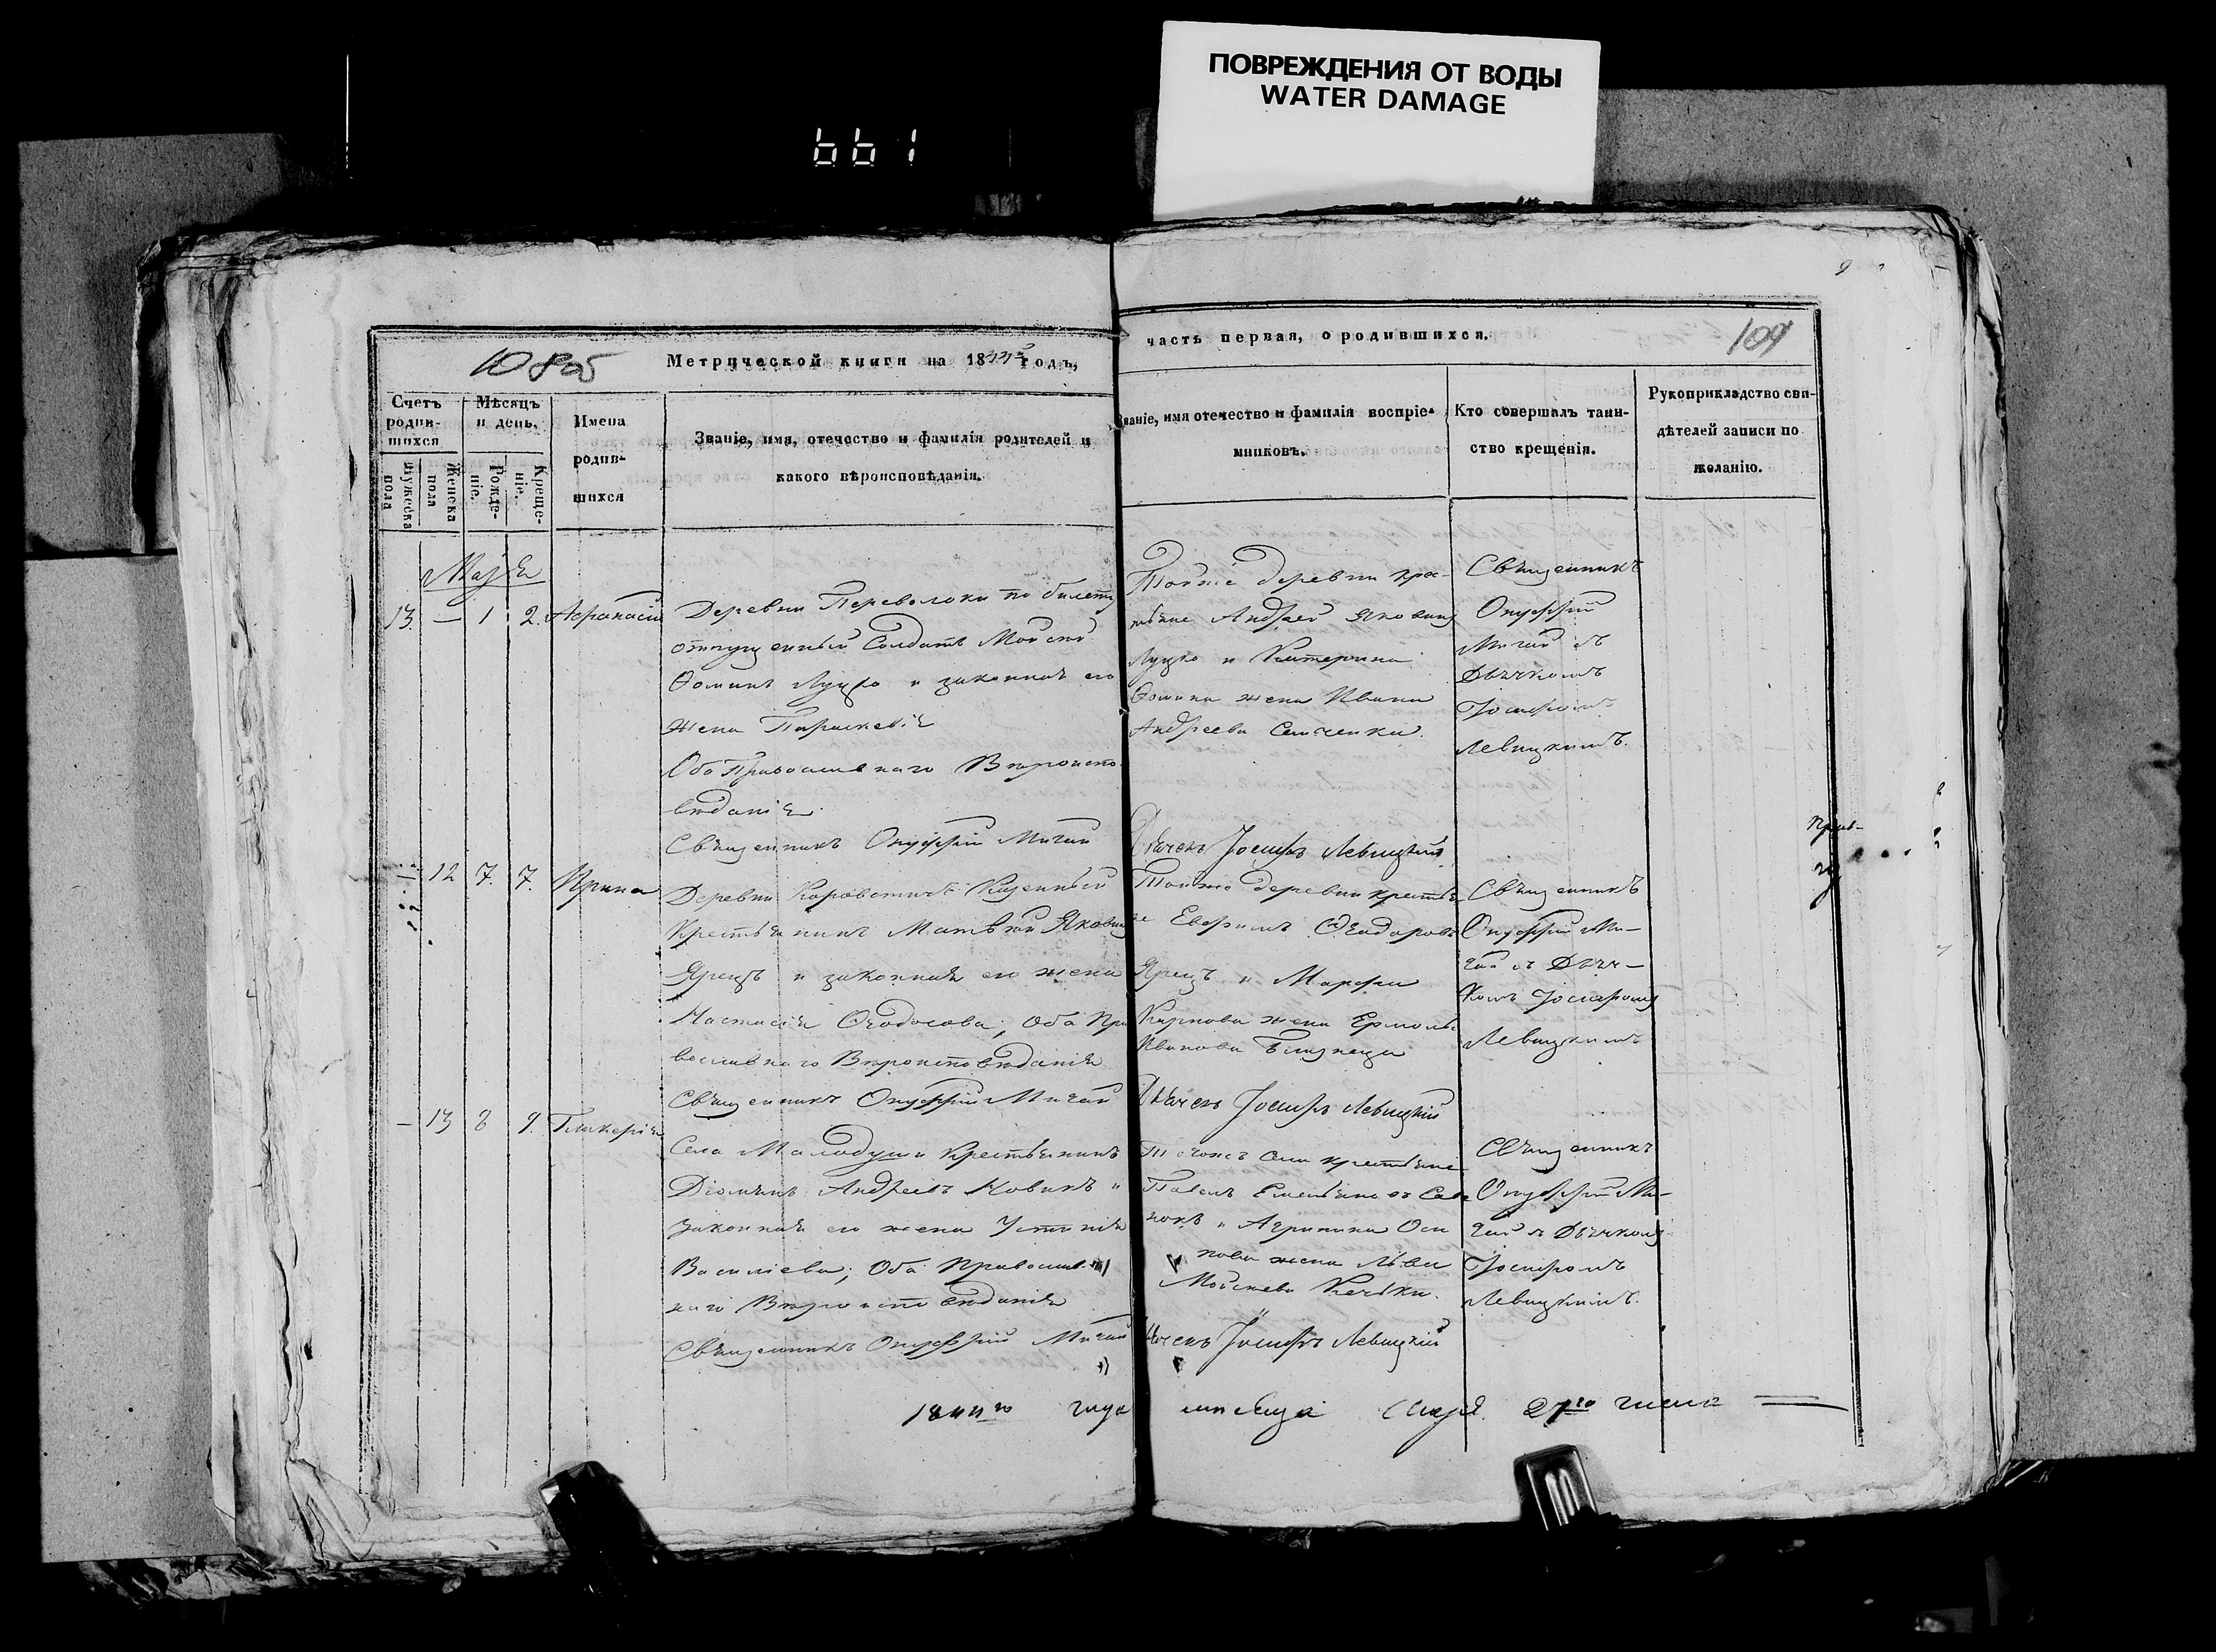 ПОВРЕЖДЕНИЯ ОТ ВОДЫ
WATER DAMAGE
661
Метрической книги на 18 годъ,
часть первая, о родившихся.
109
Счетъ родившихся
Мужеска пола
Женска пола
Мѣсяцъ и день.
Рожденіе.
Крещеніе.
Имена родившихся
Званіе, имя, отечество и фамилія родителей и
какого вѣроисповѣданія.
Званіе, имя отечество и фамилія воспріе-
мниковъ.
Кто совершалъ таин-
ство крещенія.
Рукоприкладство сви-
дѣтелей записи по
желанію.
13. — 1 2. Афанасій
Деревни Переволоки по билету
отпущенный Солдатъ Мойсей
Ѳоминъ Луцко и законная его
жена Параскевія
Оба Православнаго Вѣроиспо-
вѣданія
Священникъ Онуфрій Мигай
Тойже деревни кре-
стьяне Андрей Яковлевъ
Луцко и Катерина
Ѳомина жена Ивана
Андреева
Священникъ
Онуфрій
Мигай съ
Дьячкомъ
Іосифомъ
Левицкимъ.
Дьячекъ Іосифъ Левицкій
— 12 7. 7. Ирина
Деревни Казенный
Крестьянинъ Матвѣй Яковлевъ
и законная его жена
Настасія Ѳеодосова, Оба Пра
вославнаго Вѣроисповѣданія
Священникъ Онуфрій Мигай
Тойже деревни крестья
не Евфимъ Ѳеодоровъ
и Марфа
Карпова жена Ермолы
Иванова
Священникъ
Онуфрій Ми-
гай съ Дьяч-
комъ Іосифомъ
Левицкимъ
Дьячекъ Іосифъ Левицкій
— 13 8 9. Гликерія
Села Малодуши Крестьянинъ
Андреевъ Новикъ и
законная его жена Устинія
Василіева, Оба Православ
наго Вѣроисповѣданія
Священникъ Онуфрій Мигай
Тогоже села крестьяне
Павелъ Емельяновъ
и Агрипина Оси
пова жена Льва
Мойсеева
Священникъ
Онуфрій Ми-
гай съ Дьячкомъ
Іосифомъ
Левицкимъ.
Дьячекъ Іосифъ Левицкій
года мѣсяца 27го числа